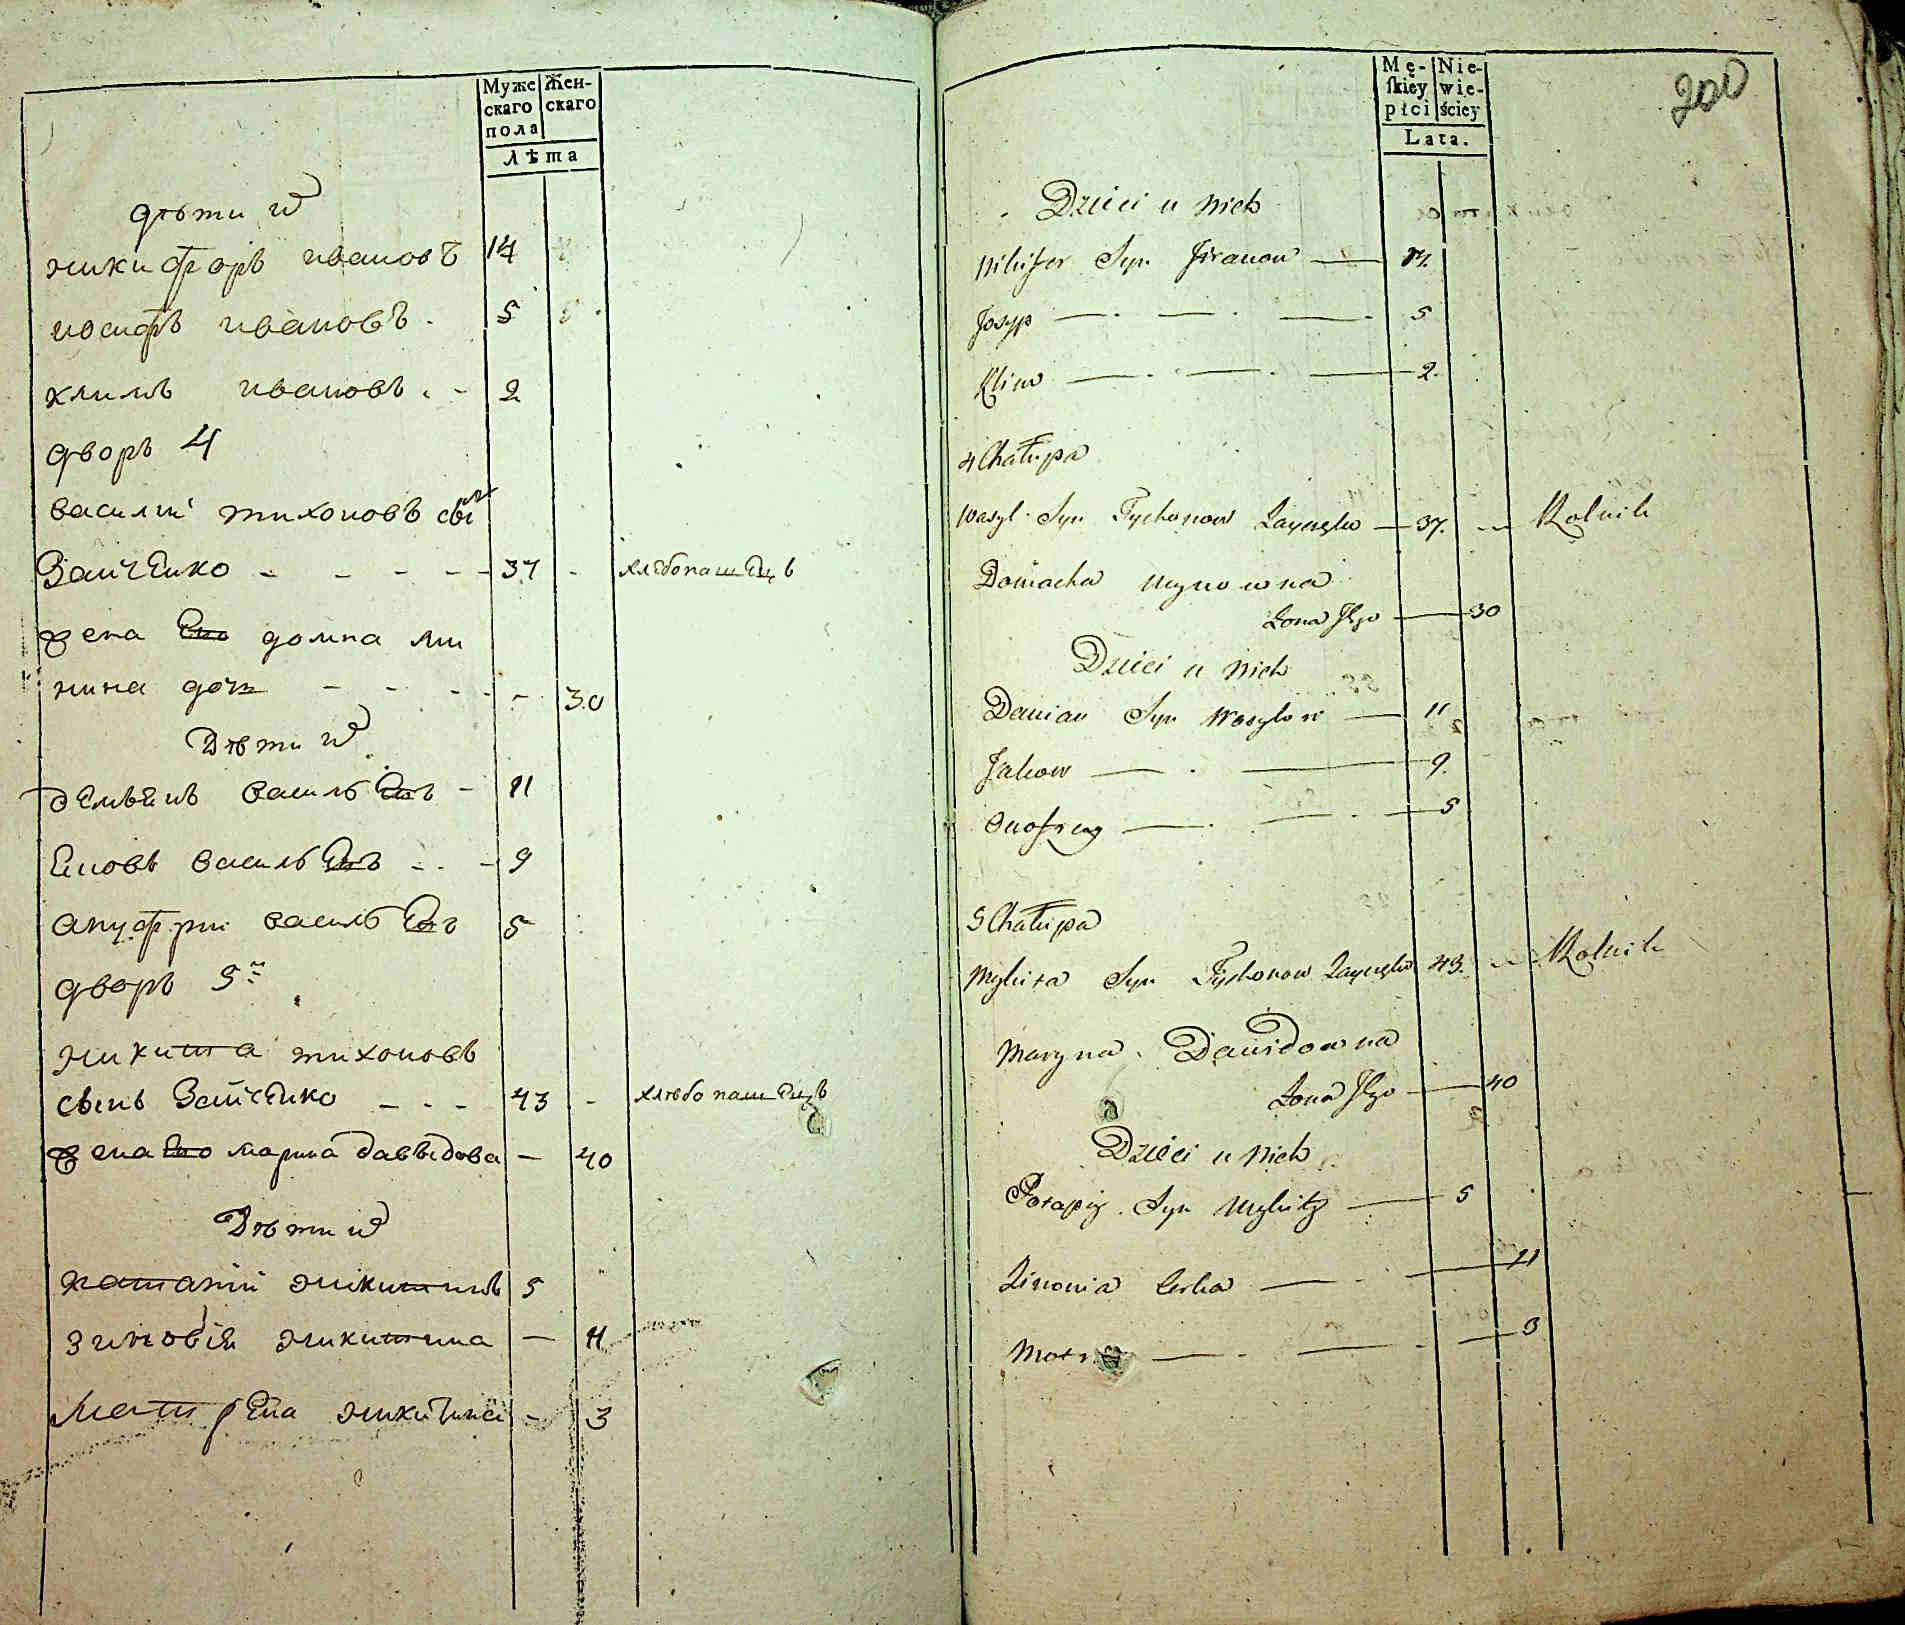 Муже Жен-
скаго скаго
пола
лѣта
дѣти ихъ
никифоръ ивановъ 14
иосифъ ивановъ 5
климъ ивановъ 2
дворъ 4
василий тихоновъ сынъ
Зайченко 37 хлѣбопашецъ
жена Его домна ми
нина дочь 30
Дѣти ихъ
демьянъ васильевъ 11
Яковъ васильевъ 9
ануфрий васильевъ 5
дворъ 5й
никита тихоновъ
сынъ Зайченко 43 хлѣбопашецъ
жена его марина давыдова 40
Дѣти ихъ
патапий никитинъ 5
зиновия никитина 11
Матрена никитина 3
Mę- Nie-
ſkiey wie-
płci ściey
Lata.
200
Dzieci u nich
Nikifor Syn Jwanow 14.
Josyp 5
Klim 2.
4 Chałupa
Wasyl Syn Tychonow Zayczęko 37. Rolnik
Domacha Mynowna
Żona Jego 30
Dzieci u nich
Damian Syn Wasylow 11
Jakow 9.
Onofrey 5
5 Chałupa
Mykita Syn Tychonow Zayczęko 43. Rolnik
Maryna Dawidowna
Żona Jego 40
Dzieci u nich
Potapiy Syn Mykity 5
Zinowia Corka 11
3